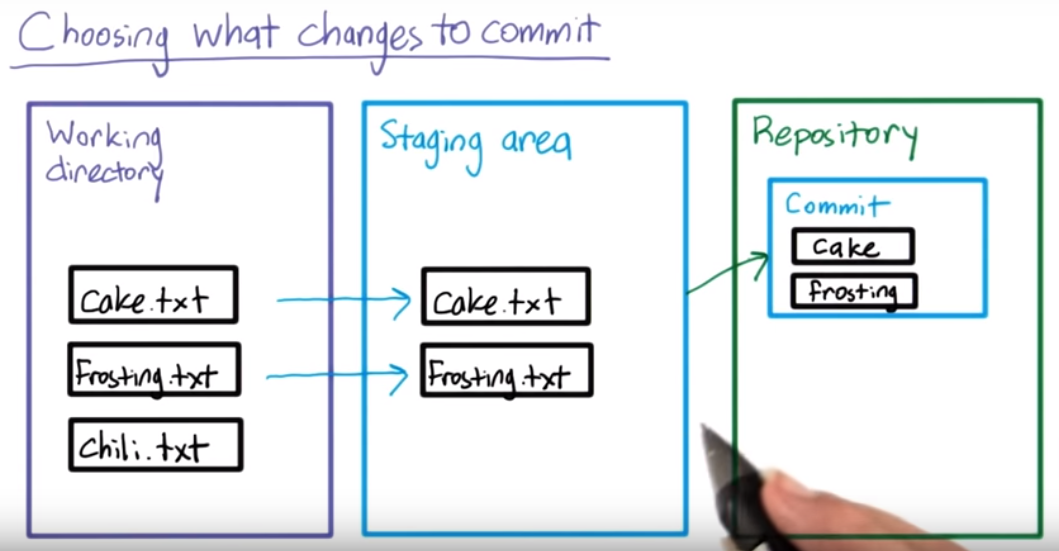 Choosing what changes to commit
Working
directory
Cake.txt
Frosting.txt
Chili.txt
Staging area
Cake.txt
Frosting.txt
Repository
Commit
Cake
Frosting